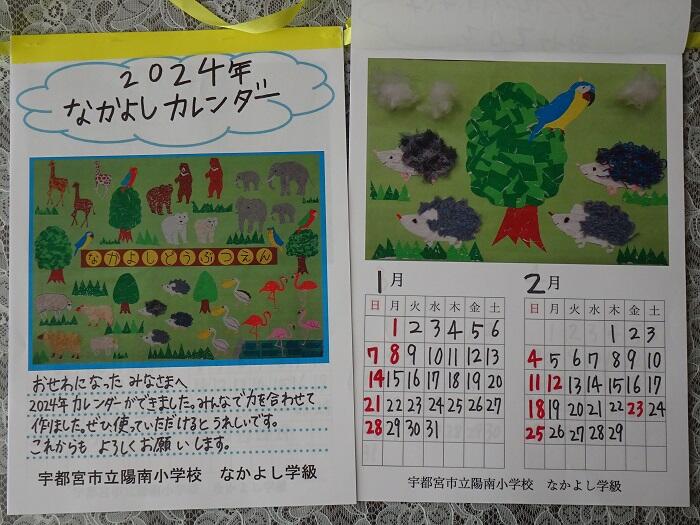 2024年
なかよしカレンダー
なかよしどうぶつえん
おせわになった みなさまへ
2024年カレンダーができました。みんなで力を合わせて
作りました。ぜひ使っていただけるとうれしいです。
これからも よろしくお願いします。
宇都宮市立陽南小学校 なかよし学級
1月
日 月 火 水 木 金 土
1 2 3 4 5 6
7 8 9 10 11 12 13
14 15 16 17 18 19 20
21 22 23 24 25 26 27
28 29 30 31
2月
日 月 火 水 木 金 土
1 2 3
4 5 6 7 8 9 10
11 12 13 14 15 16 17
18 19 20 21 22 23 24
25 26 27 28 29
宇都宮市立陽南小学校 なかよし学級